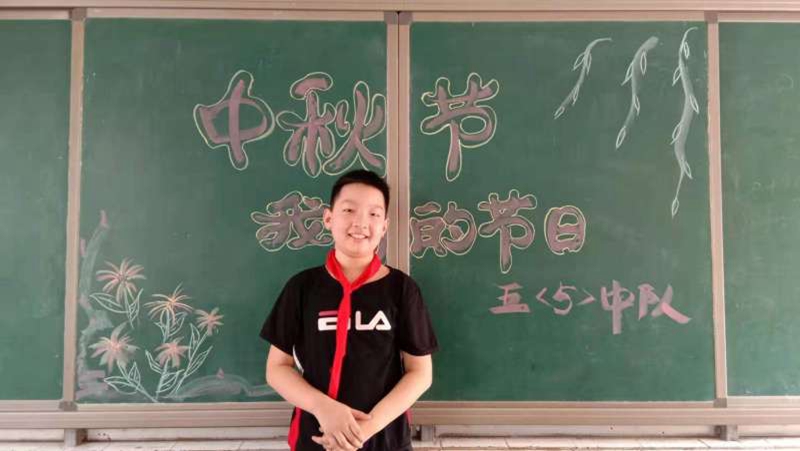 中秋节
我的节日
五<5>中队